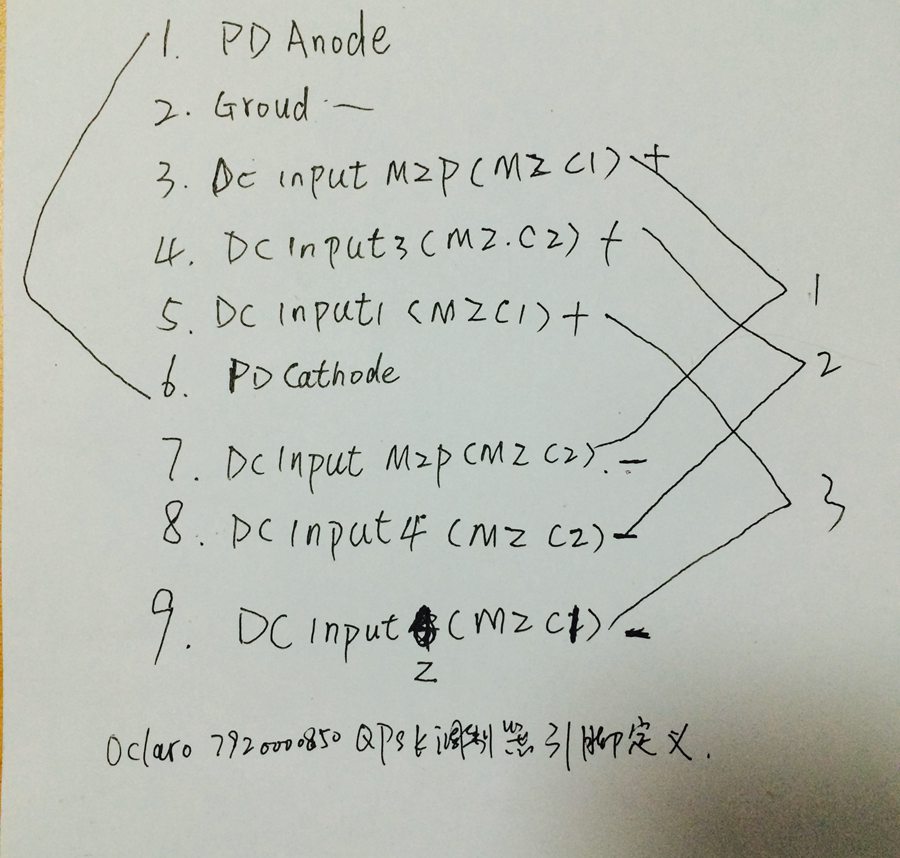 1. PD Anode
2. Groud —
3. DC input MZP (MZ C1) +
4. DC Input3 (MZ.C2) +
5. DC Input1 (MZC1) +
6. PD Cathode
7. DC Input MZP (MZ C2). -
8. DC Input4 (MZ C2) -
9. DC Input (MZ C1) -
2
1
2
3
Oclaro 792000850 QPSK调制器引脚定义.